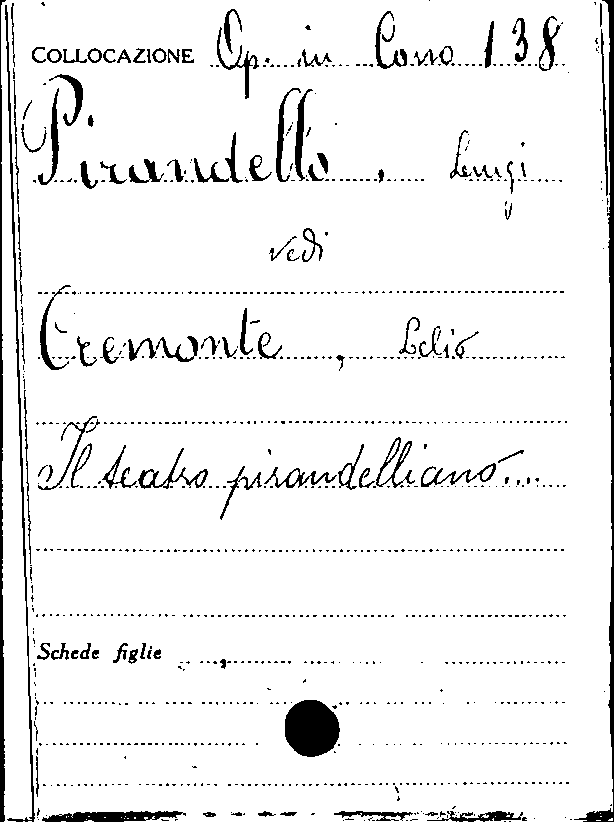 COLLOCAZIONE Op. in Cons 138
Pirandello, Luigi
vedi
Cremonte, Lelio
Il teatro pirandelliano....
Schede figlie